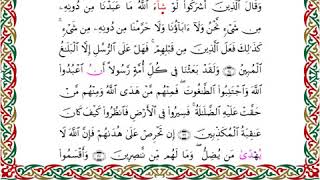 وَقَالَ الَّذِينَ أَشْرَكُوا لَوْ شَاءَ اللَّهُ مَا عَبَدْنَا مِن دُونِهِ
مِن شَيْءٍ نَّحْنُ وَلَا آبَاؤُنَا وَلَا حَرَّمْنَا مِن دُونِهِ مِن شَيْءٍ
كَذَٰلِكَ فَعَلَ الَّذِينَ مِن قَبْلِهِمْ فَهَلْ عَلَى الرُّسُلِ إِلَّا الْبَلَاغُ
الْمُبِينُ وَلَقَدْ بَعَثْنَا فِي كُلِّ أُمَّةٍ رَّسُولًا أَنِ اعْبُدُوا
اللَّهَ وَاجْتَنِبُوا الطَّاغُوتَ فَمِنْهُم مَّنْ هَدَى اللَّهُ وَمِنْهُم مَّنْ
حَقَّتْ عَلَيْهِ الضَّلَالَةُ فَسِيرُوا فِي الْأَرْضِ فَانظُرُوا كَيْفَ كَانَ
عَاقِبَةُ الْمُكَذِّبِينَ إِن تَحْرِصْ عَلَىٰ هُدَاهُمْ فَإِنَّ اللَّهَ لَا
يَهْدِي مَن يُضِلُّ وَمَا لَهُم مِّن نَّاصِرِينَ وَأَقْسَمُوا